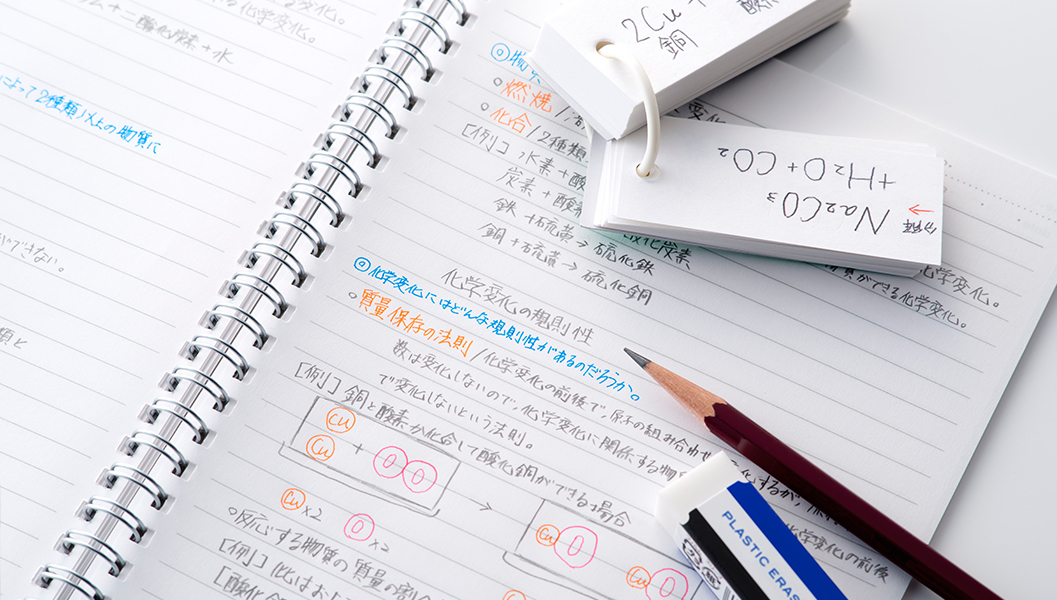 る化学変化。
二酸化炭素+水
によって2種類以上の物質に
できない。
類と
◎物
○燃焼/
○化合/2種類
[例] 水素+酸
炭素+酸素
鉄+硫黄→硫化鉄
銅+硫黄→硫化銅
化炭素
化学変化。
ができる化学変化。
化学変化の規則性
◎化学変化にはどんな規則性があるのだろうか。
○質量保存の法則/化学変化の前後で、原子の組み合わせ
化するが、
数は変化しないので、化学変化に関係する物
化学変化の前後
で変化しないという法則。
[例] 銅と酸素が化合して酸化銅ができる場合
Cu
Cu + O O → Cu O
Cu O
Cu x2 O x2
○反応する物質の質量の割合
[例]
[酸化
2Cu +
銅
酸
Na2CO3
+H2O+CO2
分解
PLASTIC ERAS